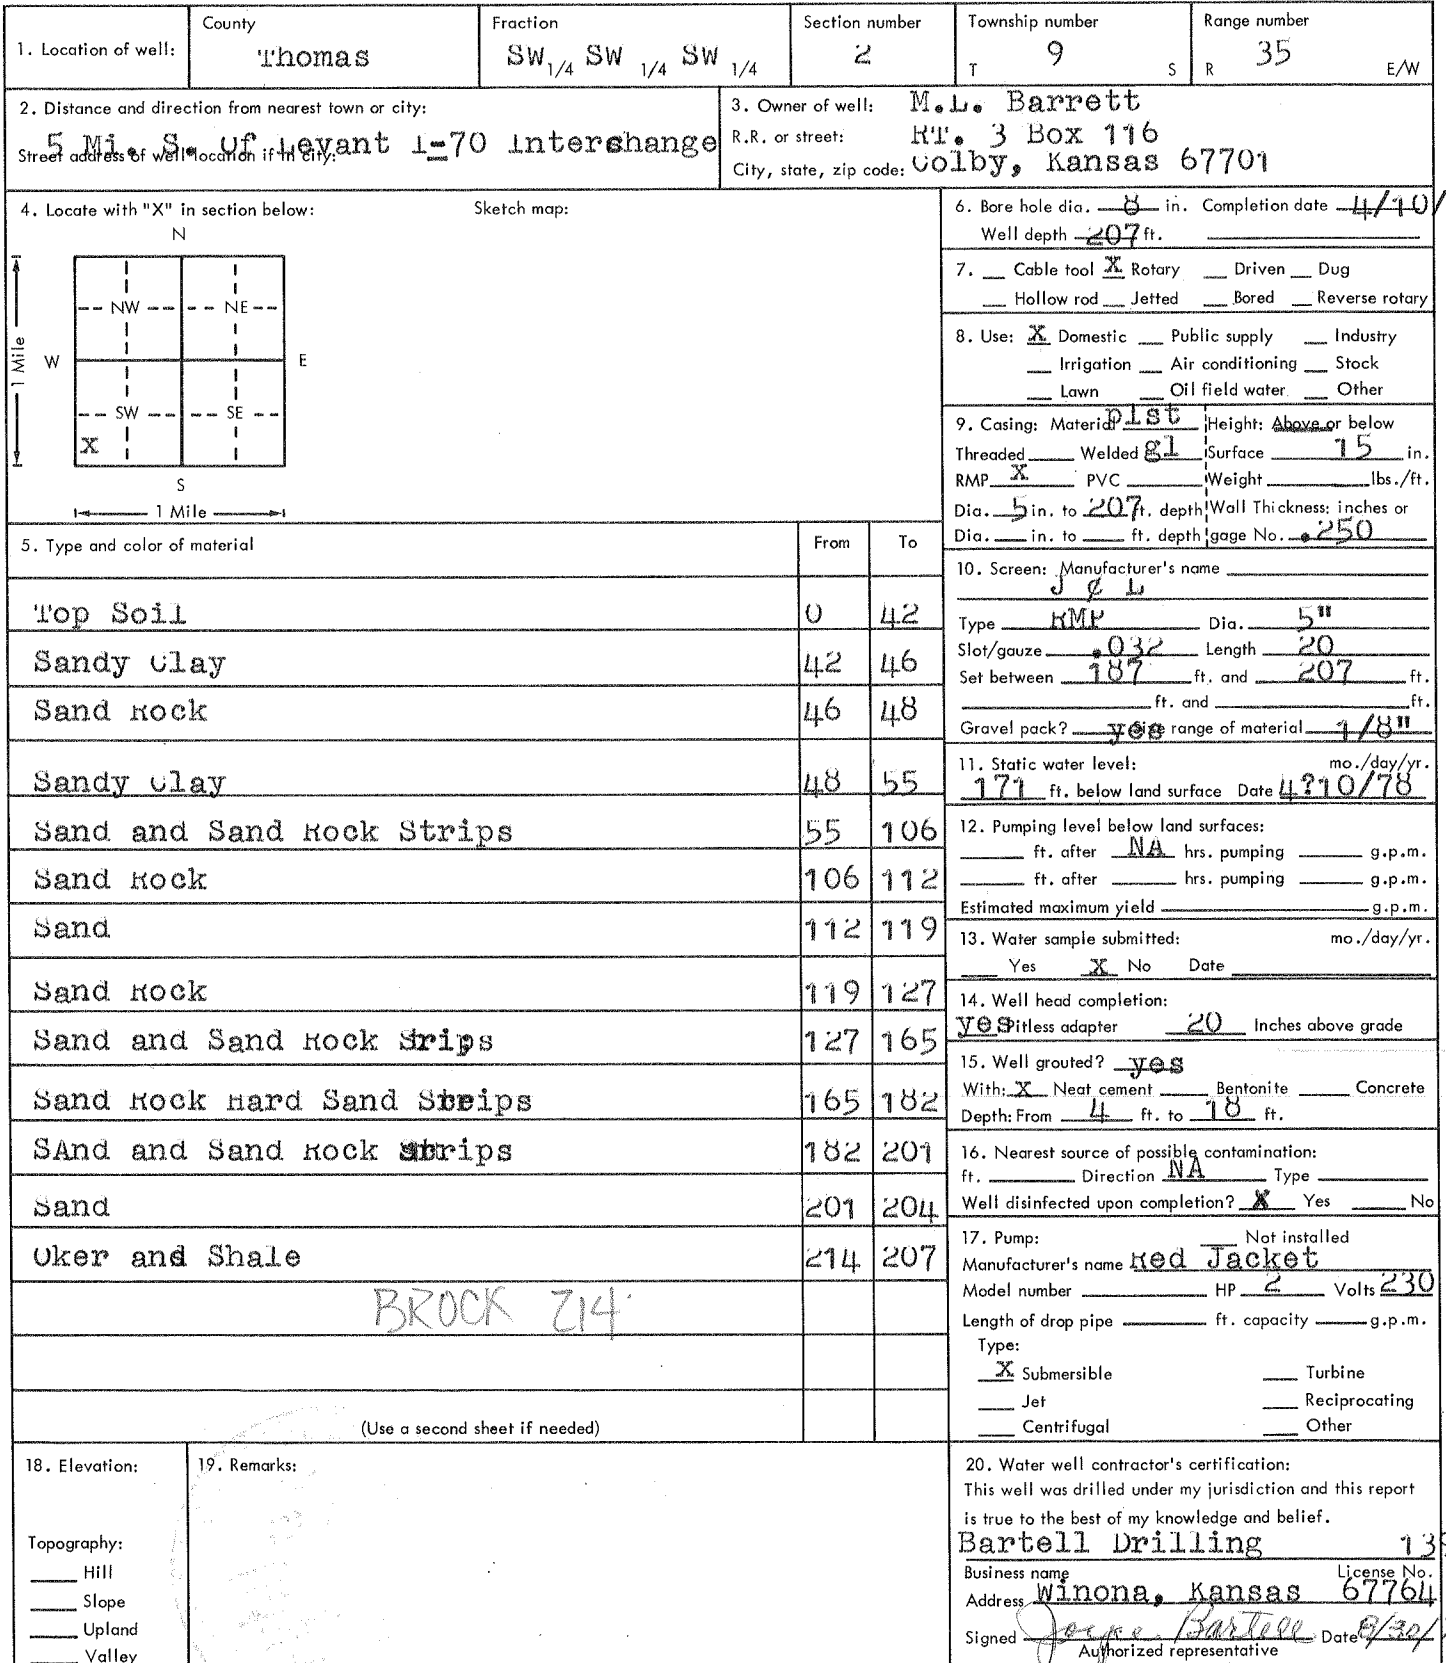 1. Location of well: County Thomas Fraction SW 1/4 SW 1/4 SW 1/4 Section number 2 Township number T 9 S Range number R 35 E/W
2. Distance and direction from nearest town or city:
5 Mi. S. Of Levant I-70 Interchange
Street address of well location if in city:
3. Owner of well: M.L. Barrett
R.R. or street: RT. 3 Box 116
City, state, zip code: Colby, Kansas 67701
4. Locate with "X" in section below: Sketch map:
N
NW NE
W E
1 Mile
SW SE
X
S
1 Mile
5. Type and color of material From To
Top Soil 0 42
Sandy Clay 42 46
Sand Rock 46 48
Sandy Clay 48 55
Sand and Sand Rock Strips 55 106
Sand Rock 106 112
Sand 112 119
Sand Rock 119 127
Sand and Sand Rock Strips 127 165
Sand Rock Hard Sand Streips 165 182
SAnd and Sand Rock strips 182 201
Sand 201 204
Oker and Shale 214 207
BROCK 214'
(Use a second sheet if needed)
6. Bore hole dia. 8 in. Completion date 4/10/
Well depth 207 ft.
7. Cable tool X Rotary Driven Dug
Hollow rod Jetted Bored Reverse rotary
8. Use: X Domestic Public supply Industry
Irrigation Air conditioning Stock
Lawn Oil field water Other
9. Casing: Material plst Height: Above or below
Threaded Welded gl Surface 15 in.
RMP X PVC Weight lbs./ft.
Dia. 5 in. to 207 ft. depth Wall Thickness: inches or
Dia. in. to ft. depth gage No. .250
10. Screen: Manufacturer's name
J & L
Type RMP Dia. 5"
Slot/gauze .032 Length 20
Set between 187 ft. and 207 ft.
ft. and ft.
Gravel pack? yes Size range of material 1/8"
11. Static water level: mo./day/yr.
171 ft. below land surface Date 4?10/78
12. Pumping level below land surfaces:
ft. after NA hrs. pumping g.p.m.
ft. after hrs. pumping g.p.m.
Estimated maximum yield g.p.m.
13. Water sample submitted: mo./day/yr.
Yes X No Date
14. Well head completion:
yes Pitless adapter 20 Inches above grade
15. Well grouted? yes
With: X Neat cement Bentonite Concrete
Depth: From 4 ft. to 18 ft.
16. Nearest source of possible contamination:
ft. Direction NA Type
Well disinfected upon completion? X Yes No
17. Pump: Not installed
Manufacturer's name Red Jacket
Model number HP 2 Volts 230
Length of drop pipe ft. capacity g.p.m.
Type:
X Submersible Turbine
Jet Reciprocating
Centrifugal Other
18. Elevation:
Topography:
Hill
Slope
Upland
Valley
19. Remarks:
20. Water well contractor's certification:
This well was drilled under my jurisdiction and this report
is true to the best of my knowledge and belief.
Bartell Drilling 139
Business name License No.
Address Winona, Kansas 67764
Signed Joyce Bartell Date 8/30/
Authorized representative